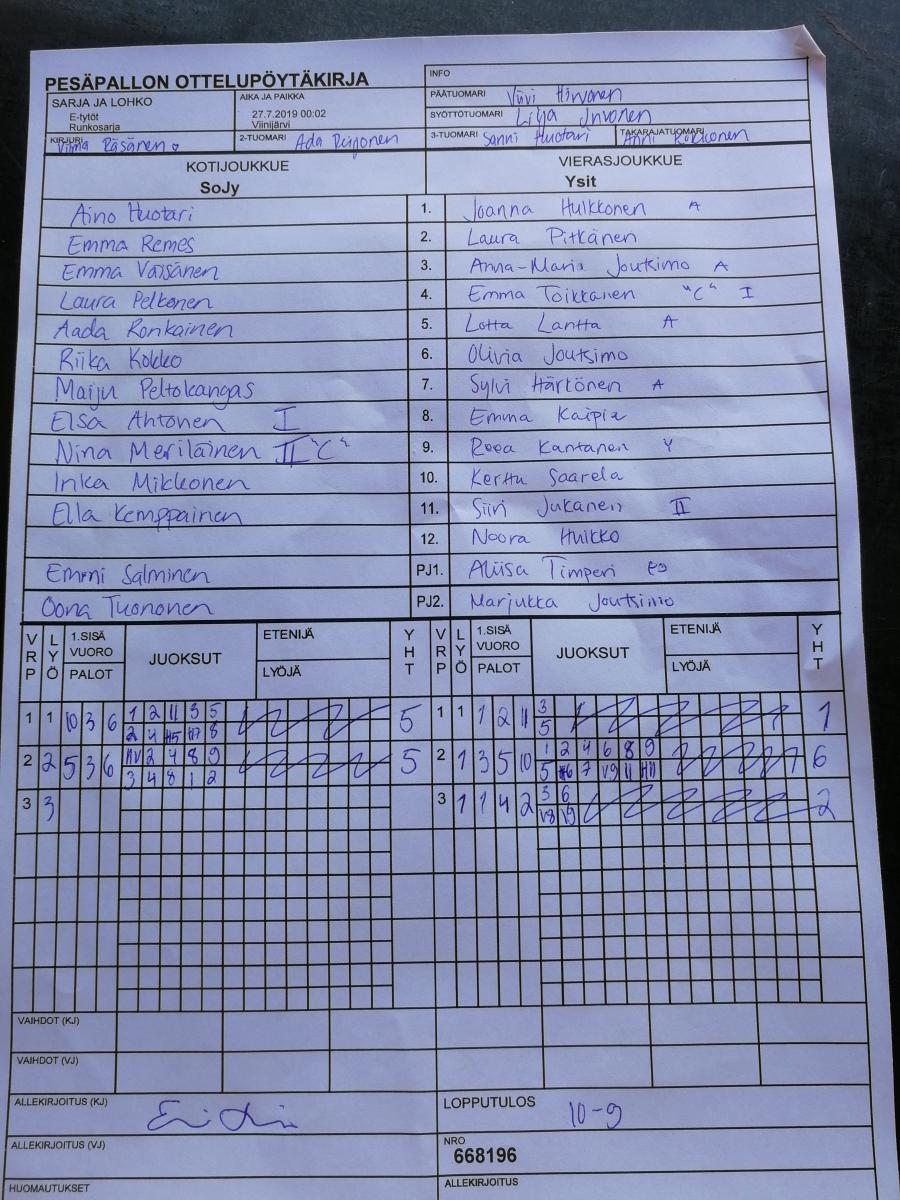 PESÄPALLON OTTELUPÖYTÄKIRJA
INFO
SARJA JA LOHKO
E-tytöt
Runkosarja
AIKA JA PAIKKA
27.7.2019 00:02
Viinijärvi
PÄÄTUOMARI Viivi Hirvonen
SYÖTTÖTUOMARI Lilja Invonen
KIRJURI Vilma Räsänen
2-TUOMARI Ada
3-TUOMARI Sanni Huotari
TAKARAJATUOMARI Anni Kokkonen
KOTIJOUKKUE
SoJy
VIERASJOUKKUE
Ysit
Aino Huotari 1. Joanna Hulkkonen A
Emma Remes 2. Laura Pitkänen
Emma Väisänen 3. Anna-Maria Joutsimo A
Laura Pelkonen 4. Emma Toikkanen "C" I
Aada Ronkainen 5. Lotta Lantta A
Riika Kokko 6. Olivia Joutsimo
Maiju Peltokangas 7. Sylvi Härkönen A
Elsa Ahtonen I 8. Emma Kaipia
Nina Meriläinen II "C" 9. Reea Kantanen Y
Inka Mikkonen 10. Kerttu Saarela
Ella Kemppainen 11. Siiri Jukanen II
12. Noora Huikko
Emmi Salminen PJ1. Aliisa Timperi
Oona Tuononen PJ2. Marjukka Joutsimo
VRP LYÖ 1.SISÄ VUORO PALOT JUOKSUT ETENIJÄ LYÖJÄ YHT VRP LYÖ 1.SISÄ VUORO PALOT JUOKSUT ETENIJÄ LYÖJÄ YHT
1 1 10 3 6 1 2 11 3 5 5 1 1 1 2 11 3 1
2 4 H5 H7 8 5
2 2 5 3 6 2 4 8 9 5 2 1 3 5 10 1 2 4 6 8 9 6
3 4 8 1 2 5 7 V9 11 H11
3 3 3 1 1 4 2 3 6 2
V8 V9
VAIHDOT (KJ)
VAIHDOT (VJ)
ALLEKIRJOITUS (KJ)
LOPPUTULOS 10-9
ALLEKIRJOITUS (VJ)
NRO
668196
HUOMAUTUKSET
ALLEKIRJOITUS